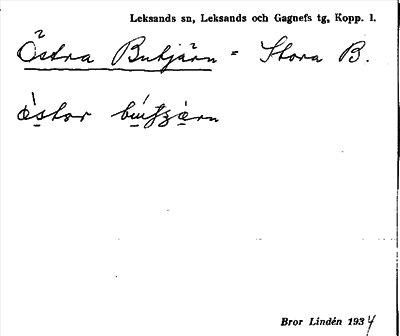 Leksands sn, Leksands och Gagnefs tg, Kopp. l.
Östra Butjärn = Stora B.
Bror Lindén 1934